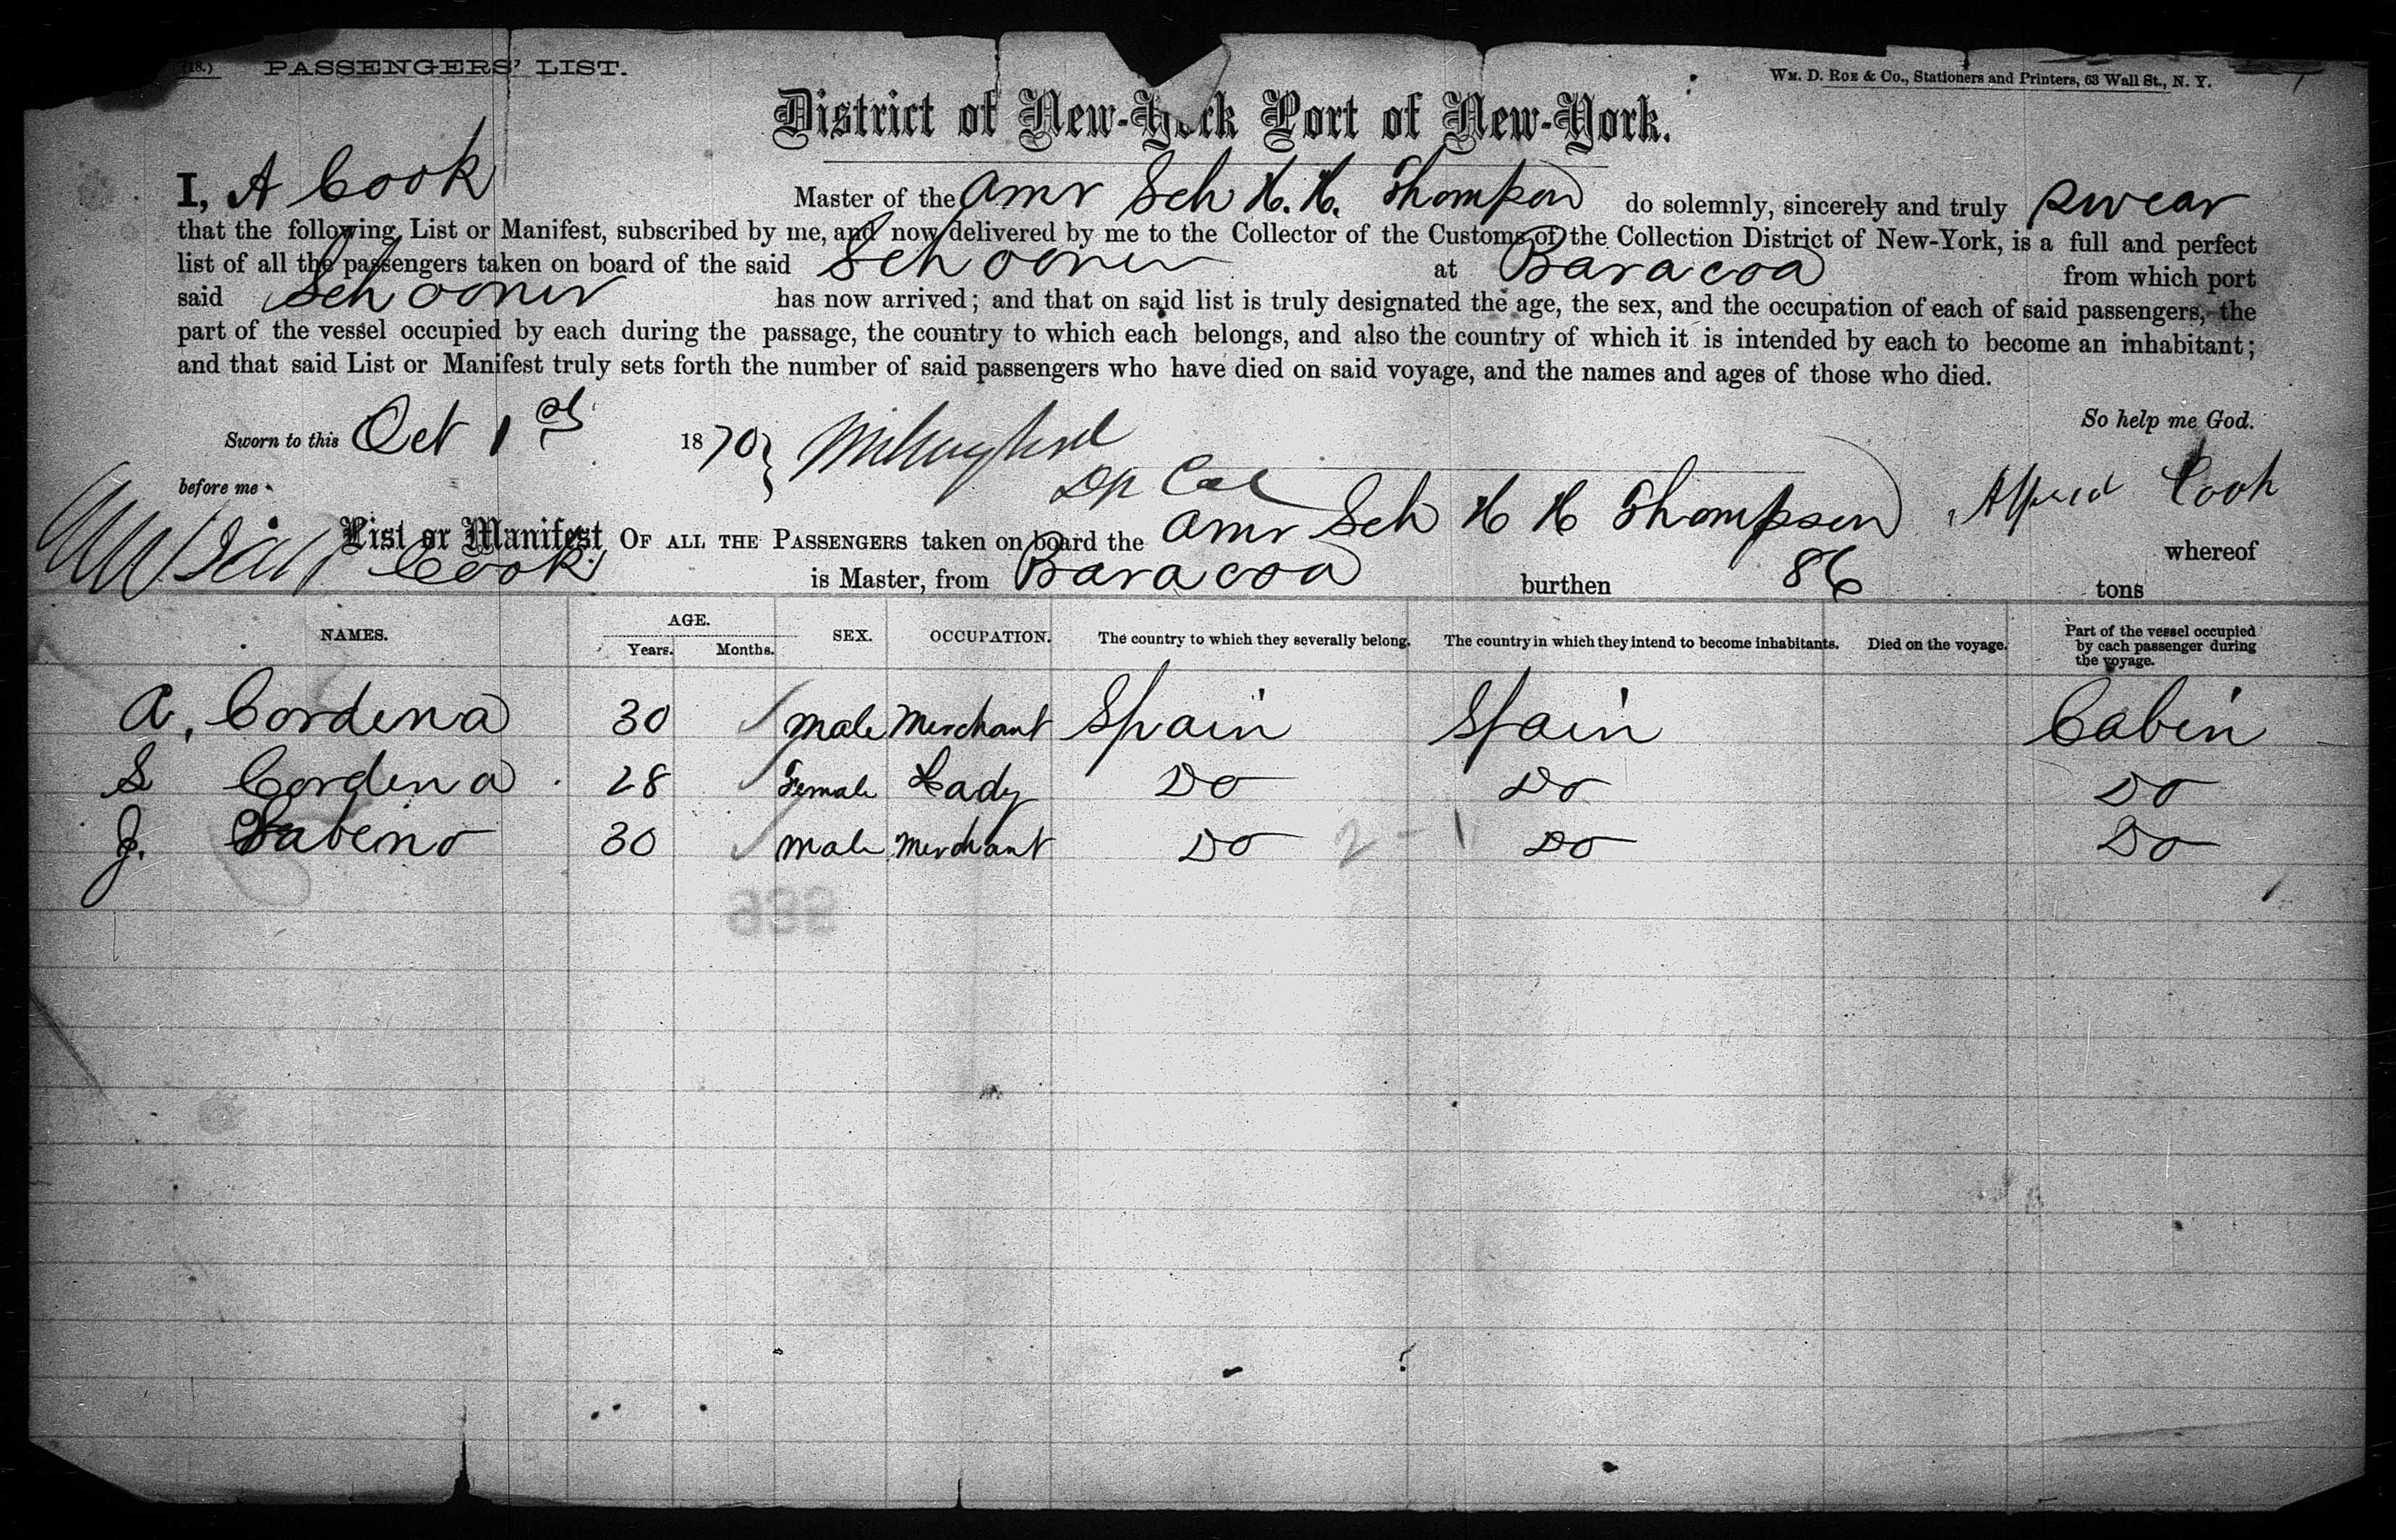 (18.) PASSENGERS' LIST.
WM. D. ROE & CO., Stationers and Printers, 63 Wall St., N. Y.
District of New-York Port of New-York.
I, A Cook Master of the Amr Sch H. H. Thompson do solemnly, sincerely and truly swear
that the following List or Manifest, subscribed by me, and now delivered by me to the Collector of the Customs of the Collection District of New-York, is a full and perfect
list of all the passengers taken on board of the said Schooner at Baracoa from which port
said Schooner has now arrived; and that on said list is truly designated the age, the sex, and the occupation of each of said passengers, the
part of the vessel occupied by each during the passage, the country to which each belongs, and also the country of which it is intended by each to become an inhabitant;
and that said List or Manifest truly sets forth the number of said passengers who have died on said voyage, and the names and ages of those who died.
So help me God.
Sworn to this Oct 1st 1870
before me Dp Col Alfred Cook
List or Manifest OF ALL THE PASSENGERS taken on board the Amr Sch H H Thompson whereof
Cook is Master, from Baracoa burthen 86 tons
NAMES. AGE. Years. Months. SEX. OCCUPATION. The country to which they severally belong. The country in which they intend to become inhabitants. Died on the voyage. Part of the vessel occupied by each passenger during the voyage.
A. Cordena 30 Male Merchant Spain Spain Cabin
S Cordena 28 Female Lady Do Do Do
J. 30 Male Merchant Do 2-1 Do Do